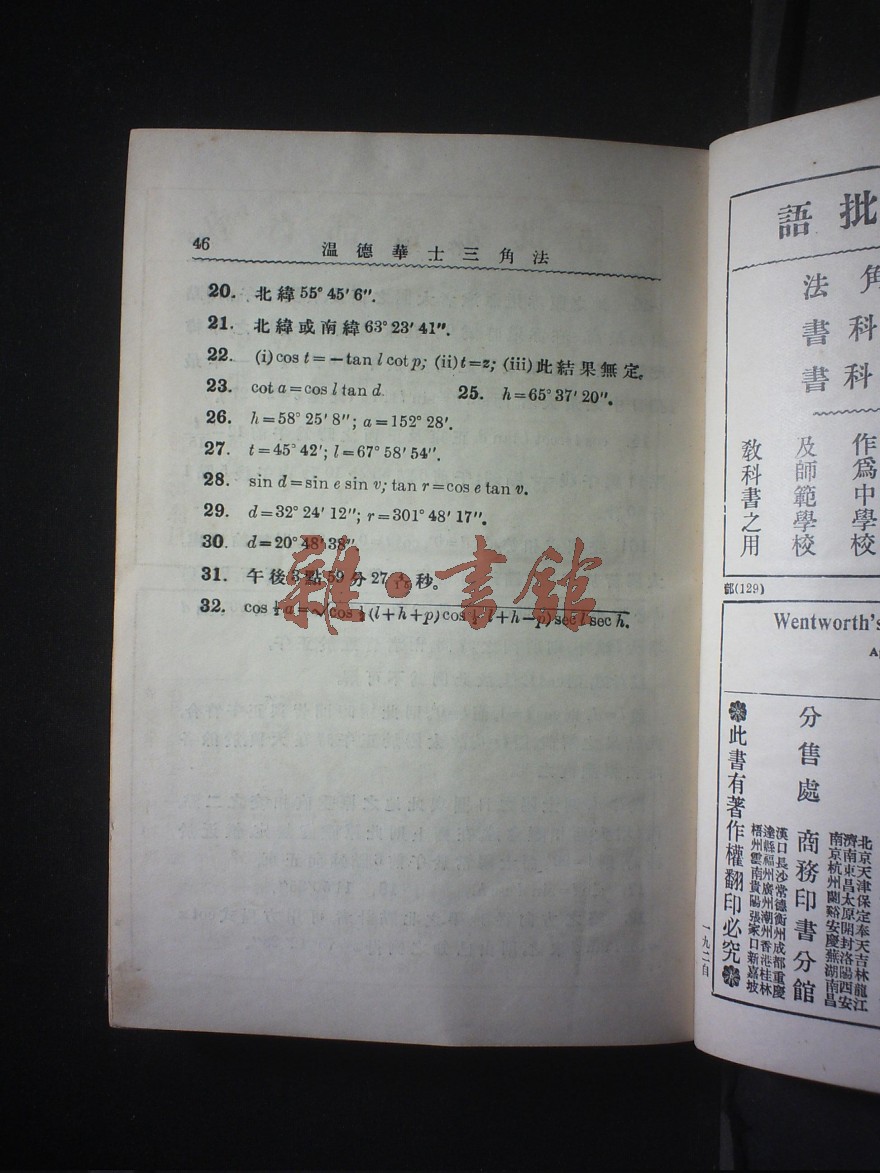 46 温德華士三角法
20. 北緯 55° 45′ 6″.
21. 北緯或南緯 63° 23′ 41″.
22. (i) cos t = −tan l cot p; (ii) t = z; (iii) 此結果無定。
23. cot a = cos l tan d. 25. h = 65° 37′ 20″.
26. h = 58° 25′ 8″; a = 152° 28′.
27. t = 45° 42′; l = 67° 58′ 54″.
28. sin d = sin e sin v; tan r = cos e tan v.
29. d = 32° 24′ 12″; r = 301° 48′ 17″.
30. d = 20° 48′ 38″
31. 午後 3 點 59 分 27 秒。
32. cos ½ a = √cos ½ (l + h + p) cos ½ (l + h − p) sec l sec h.
雜·書館
批語
角法
科書
科書
作爲中學校
及師範學校
教科書之用
郵(129)
Wentworth's
分售處 商務印書分館
北京天津保定奉天吉林龍江
濟南東昌太原開封洛陽西安
南京杭州蘭谿安慶蕪湖南昌
漢口長沙常德衡州成都重慶
達縣福州廣州潮州香港桂林
梧州雲南貴陽張家口新嘉坡
此書有著作權翻印必究
一九二自